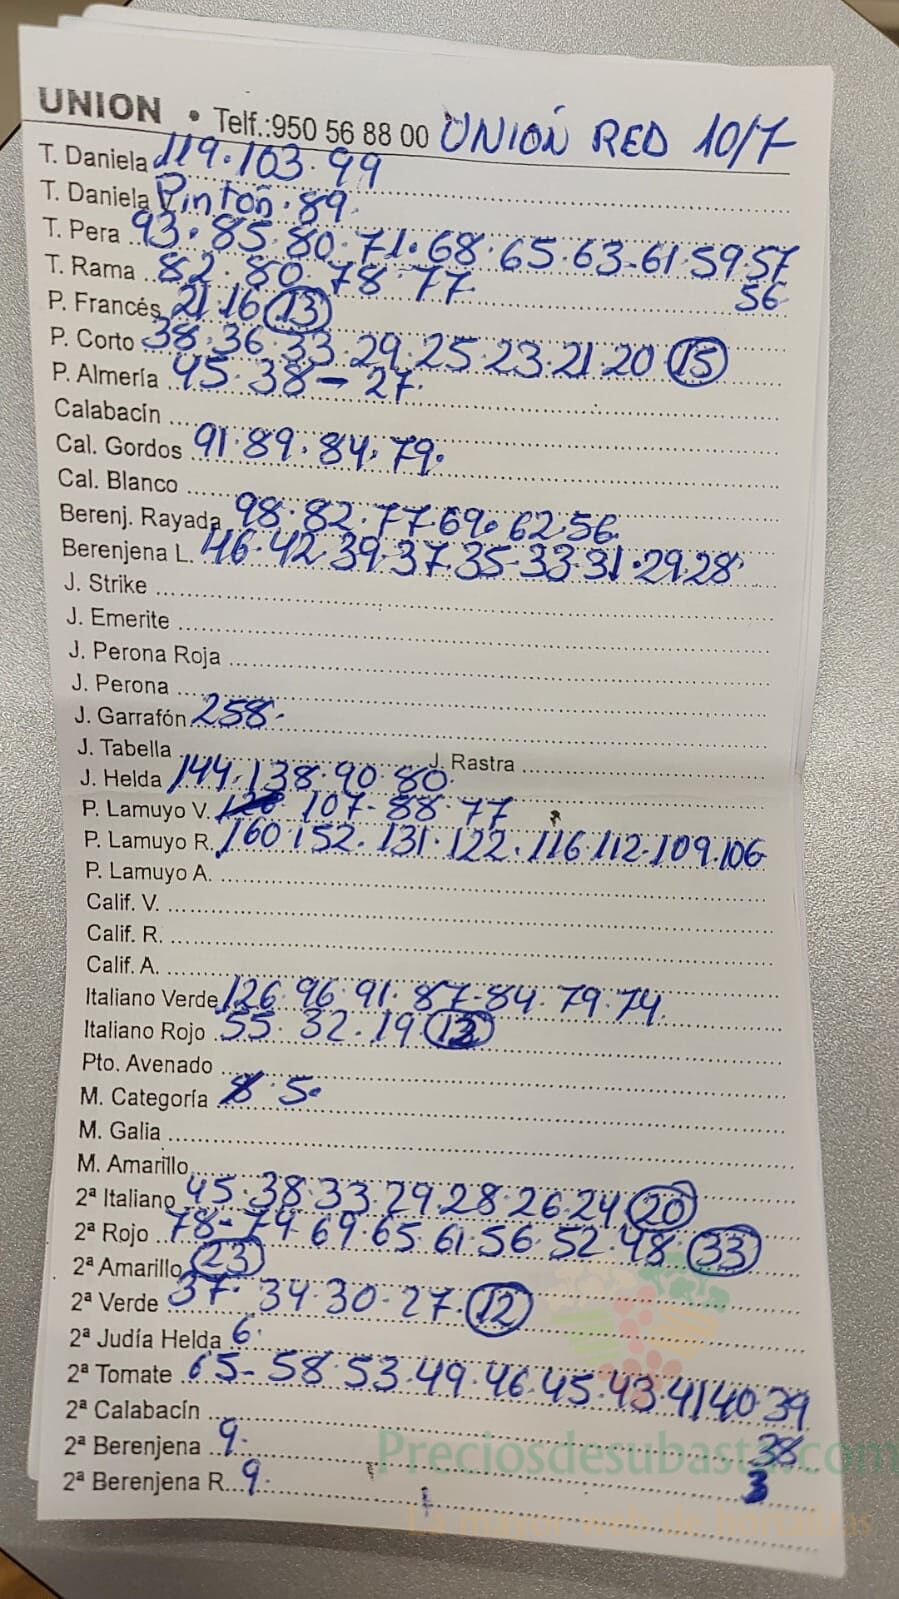 UNION • Telf.:950 56 88 00 UNION RED 10/7
T. Daniela 119.103.99
T. Daniela Pintón.89.
T. Pera 93.85.80.71.68.65.63-61.59.57
56
T. Rama 82.80.78.77
P. Francés 21.16 13
P. Corto 38.36.33.29.25.23.21.20 15
P. Almería 45.38-27.
Calabacín
Cal. Gordos 91.89.84.79.
Cal. Blanco
Berenj. Rayada 98.82.77.69.62.56.
Berenjena L. 46.42.39.37.35-33.31.29.28
J. Strike
J. Emerite
J. Perona Roja
J. Perona
J. Garrafón 258.
J. Tabella J. Rastra
J. Helda 144.138.90.80.
P. Lamuyo V. 107-88.77
P. Lamuyo R. 160.152.131.122.116.112.109.106
P. Lamuyo A.
Calif. V.
Calif. R.
Calif. A.
Italiano Verde 126.96.91.87-84.79.74.
Italiano Rojo 55.32.19
Pto. Avenado
M. Categoría 8.5.
M. Galia
M. Amarillo
2ª Italiano 45.38.33.29.28.26.24 20
2ª Rojo 78-74.69.65.61.56.52.48 33
2ª Amarillo 23
2ª Verde 37.34.30-27. 12
2ª Judía Helda 6.
2ª Tomate 65-58.53.49.46.45.43.41 40.39
38
3
2ª Calabacín
2ª Berenjena 9.
2ª Berenjena R. 9.
Preciosdesubasta.com
La mayor web de hortalizas